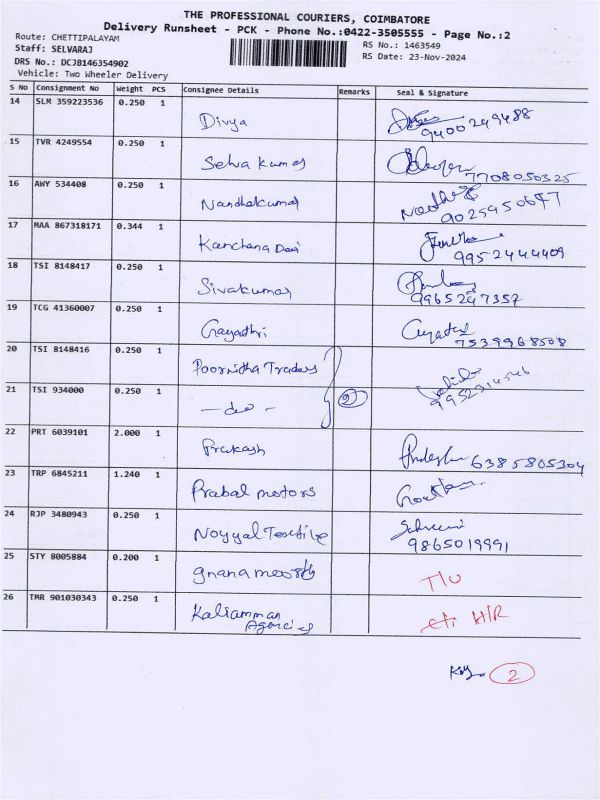 THE PROFESSIONAL COURIERS, COIMBATORE
Delivery Runsheet - PCK - Phone No.:0422-3505555 - Page No.:2
Route: CHETTIPALAYAM
Staff: SELVARAJ
RS No.: 1463549
RS Date: 23-Nov-2024
DRS No.: DCJB146354902
Vehicle: Two Wheeler Delivery
S No Consignment No Weight PCS Consignee Details Remarks Seal & Signature
14 SLM 359223536 0.250 1 Divya
9400249488
15 TVR 4249554 0.250 1 Selva kumar
7708050325
16 AWY 534408 0.250 1 Nandhakumar
9025950647
17 MAA 867318171 0.344 1 Kanchana Devi
9952444409
18 TSI 8148417 0.250 1 Sivakumar
9965247357
19 TCG 41360007 0.250 1 Gayathri
7539968508
20 TSI 8148416 0.250 1 Poornitha Traders
21 TSI 934000 0.250 1 - do - 2
22 PRT 6039101 2.000 1 Prakash
6385805304
23 TRP 6845211 1.240 1 Prabal motors
24 RJP 3480943 0.250 1 Noyyal Textile
9865019991
25 STY 8005884 0.200 1 gnana moorthy T/U
26 TMR 901030343 0.250 1 Kaliamman Agencies H/R
2